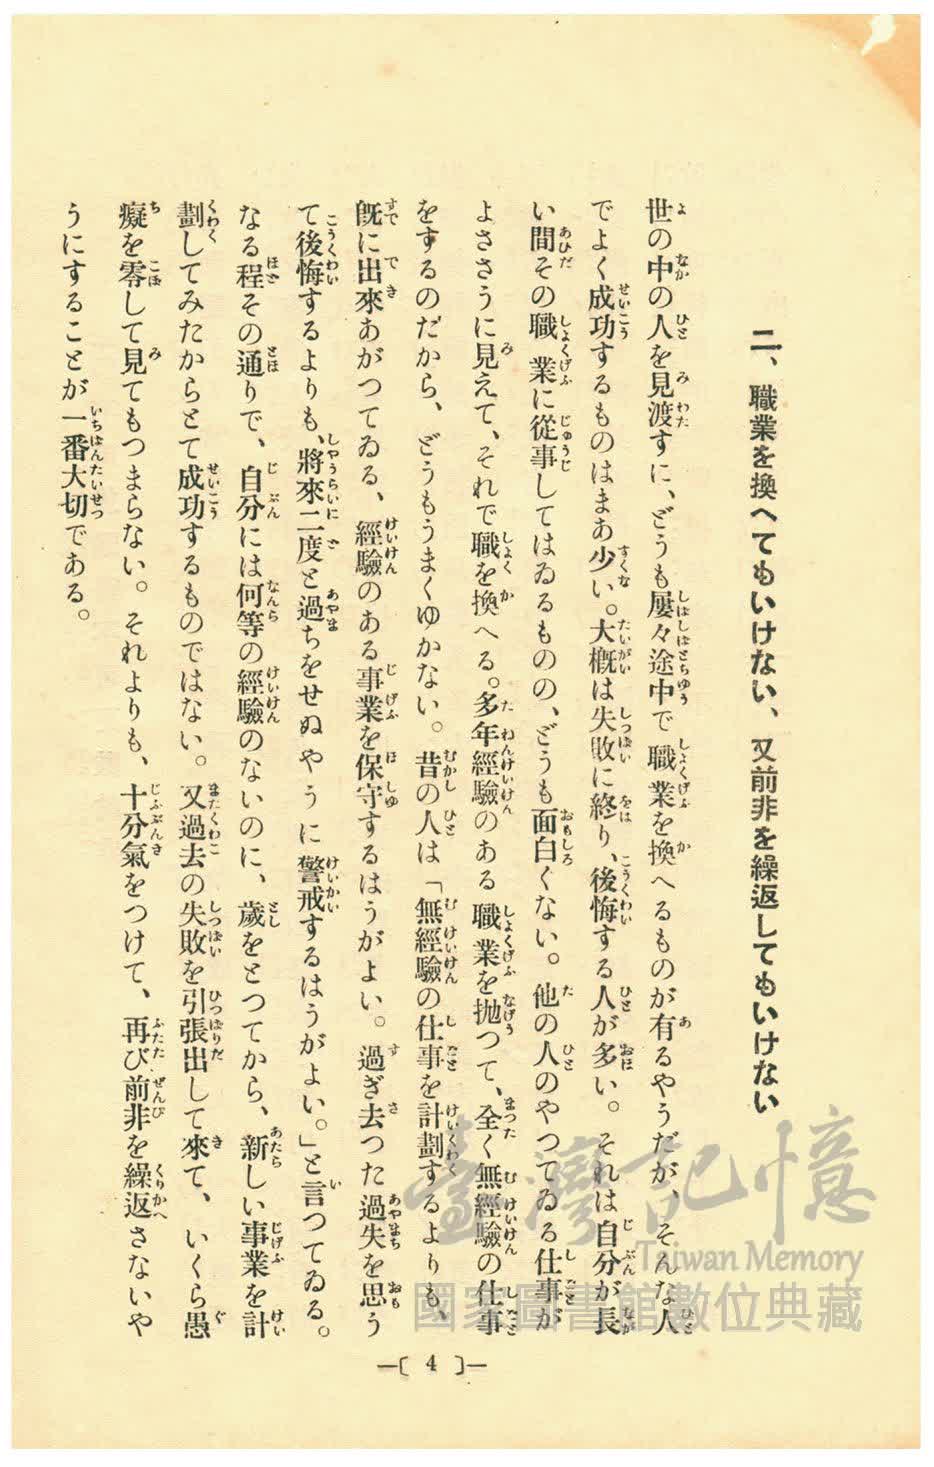 二、職業を換へてもいけない、又前非を繰返してもいけない
世の中の人を見渡すに、どうも屢々途中で職業を換へるものが有るやうだが、そんな人
でよく成功するものはまあ少い。大槪は失敗に終り、後悔する人が多い。それは自分が長
い間その職業に從事してはゐるものの、どうも面白くない。他の人のやつてゐる仕事が
よささうに見えて、それで職を換へる。多年經驗のある職業を抛つて、全く無經驗の仕事
をするのだから、どうもうまくゆかない。昔の人は「無經驗の仕事を計劃するよりも、
旣に出來あがつてゐる、經驗のある事業を保守するはうがよい。過ぎ去つた過失を思う
て後悔するよりも、將來二度と過ちをせぬやうに警戒するはうがよい。」と言つてゐる。
なる程その通りで、自分には何等の經驗のないのに、歲をとつてから、新しい事業を計
劃してみたからとて成功するものではない。又過去の失敗を引張出して來て、いくら愚
癡を零して見てもつまらない。それよりも、十分氣をつけて、再び前非を繰返さないや
うにすることが一番大切である。
—〔 4 〕—
臺灣記憶
Taiwan Memory
國家圖書館數位典藏